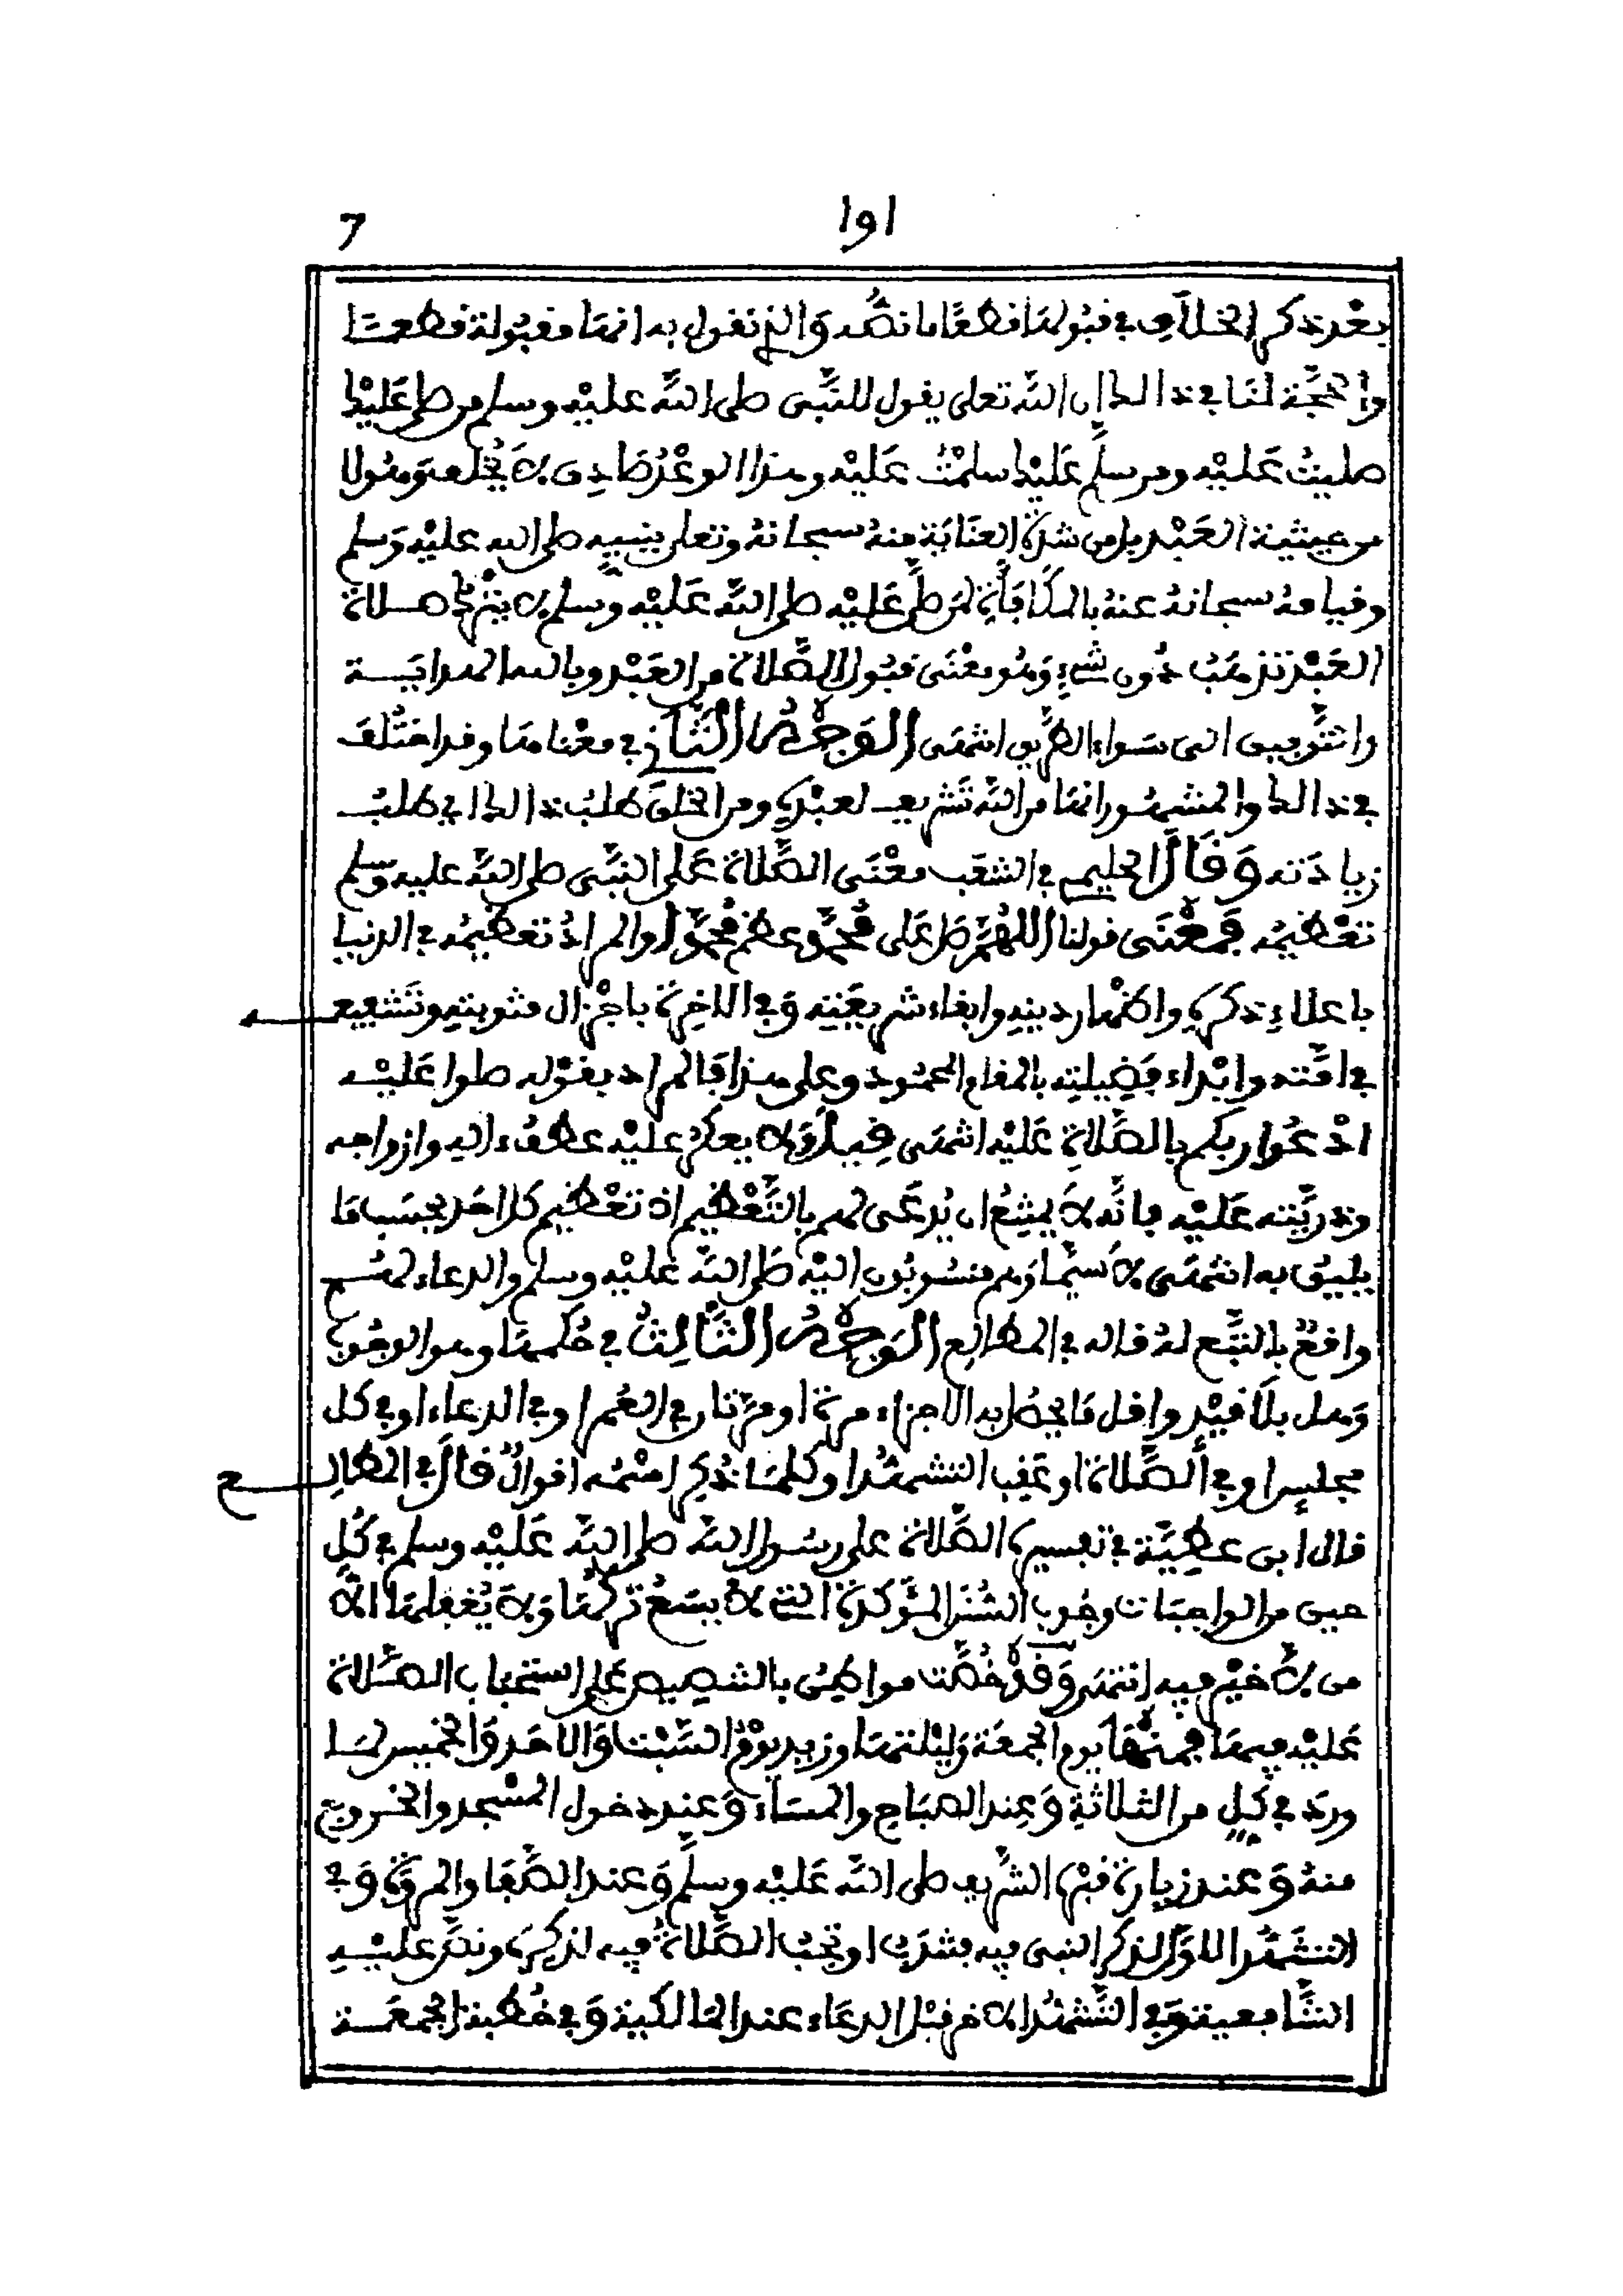 7 ١٩١
بعْد ذكر الخلاف في قبولها قطعًا ما نصُّه وَالذي نقول به انها مقبولة قطعـًا
والحجَّة لنَا في ذالك ان اللّٰه تعلى يقول للنَّبى صلى اللّٰه عليْه وسلم من صلى عَليْك
صليتُ عَليْه ومن سلّم عَليْك سلمْتُ عَليْه وهذا الوعْدُ صَادِق لا يُخْلَف وَهُو لا
من حيثية العَبْد بل من شدة العنَاية منهُ سبحانهُ وتعلى بنبيه صلى اللّٰه عليْه وَسلم
وقيامهُ سبحانهُ عنهُ بالمكَافَأَة لمَن صلَّى عَليْه صلى اللّٰه عَليْه وسلم لا يتْركُ صلاة
العَبْد تذهَبُ دُون شَيْءٍ وَهُو معْنَى قبُول الصَّلاة من العَبْد وبالله الهداية
والتَّوفيق الى سَواء الطَّريق انتهى الوَجْهُ الثَّانِي في معْناها وقد اختُلفَ
في ذالك والمشهُور انها من اللّٰه تَشْريف لعبْدِه ومن الخلقِ طلبُ ذالك اي طلبُ
زيادَته وَقَالَ الحليمي في الشعَب معْنَى الصَّلاة عَلى النبَّى صلى اللّٰه عليه وسلم
تعْظيمُه فَمعْنَى قولنا اللهُمَّ صَلّ عَلى مُحمَّدٍ عظم مُحمَّدًا والمرادُ تعظيمُه في الدنيا
باعلاءِ ذكرِه واظهار دينِه وابقاء شريعَتِه وَفي الاخِرة باجْزال مثوبتِه وتَشْفيعه
في امَّته وابْداء فَضِيلتِه بالمقام المحمُود وعلى هذا فَالمراد بقوْله صلوا عَليْه
ادْعُوا ربكم بالصَّلاةِ عَليْه انتهى قِيلَ وَلا يعكر عليْه عطفُ ءاله وازواجه
وذريَّته عَليْه فانَّه لا يمتنِعُ ان يُدعَى لهم بالتَّعْظيم اذ تعْظيم كل احَد بحسَب مَا
يليق به انتهَى لا سَيّمَا وَهم منسُوبُون اليْه صَلى اللّٰه عليْه وسلم والدعاء لهُم
واقعٌ بالتَّبَع لهُ قاله في المطالع الوَجْهُ الثَّالِثُ في حُكمهَا وهو الوجُوب
وَهل بلَا قيْد واقل مَا يحصُل به الاجزاء مرة او مرّتان في العُمر او في الدعاء او في كل
مجلسٍ او في الصَّلاة او عَقِب التشهُّد او كلمَا ذُكِر اسْمُه اقوالٌ قالَ في المطالع
قال ابن عطيَّة في تفسيره الصَّلاة على رسُول اللّٰه صلى اللّٰه عَليْه وسلم في كُلِ
حين من الواجبَات وجُوب السُّنَن المُؤَكدة التي لا يسَعُ ترْكهَا وَلا يُغْفلهَا الاَّ
من لا خيْر فيه انتهَى وَقَدْ خُصَّت مواطِنُ بالتنصيص عَلى استحبَاب الصَّلاة
عَليْه فيهَا فَمنْهَا يوم الجمعَة وَليْلتهَا وزيد يوْمُ السّبْت وَالاحَد وَالخميس لمَا
وردَ في كلٍ من الثلاثةِ وَعند الصبَاح والمسَاء وَعنْد دخول المسْجد والخروج
منهُ وَعند زيارة قبْره الشَّريف صلى اللّٰه عَليْه وسلّم وَعند الصَّفَا والمروة وَفي
التشهُّد الاوَّل لذكر النبى فيه بشدّ او تجبُ الصَّلاةُ فيه لذكره ونصَّ عليْه
الشَّافعية وَفي التَّشهُّد الاخر قبْل الدعَاء عند المَالكية وَفي خُطبة الجمعَة